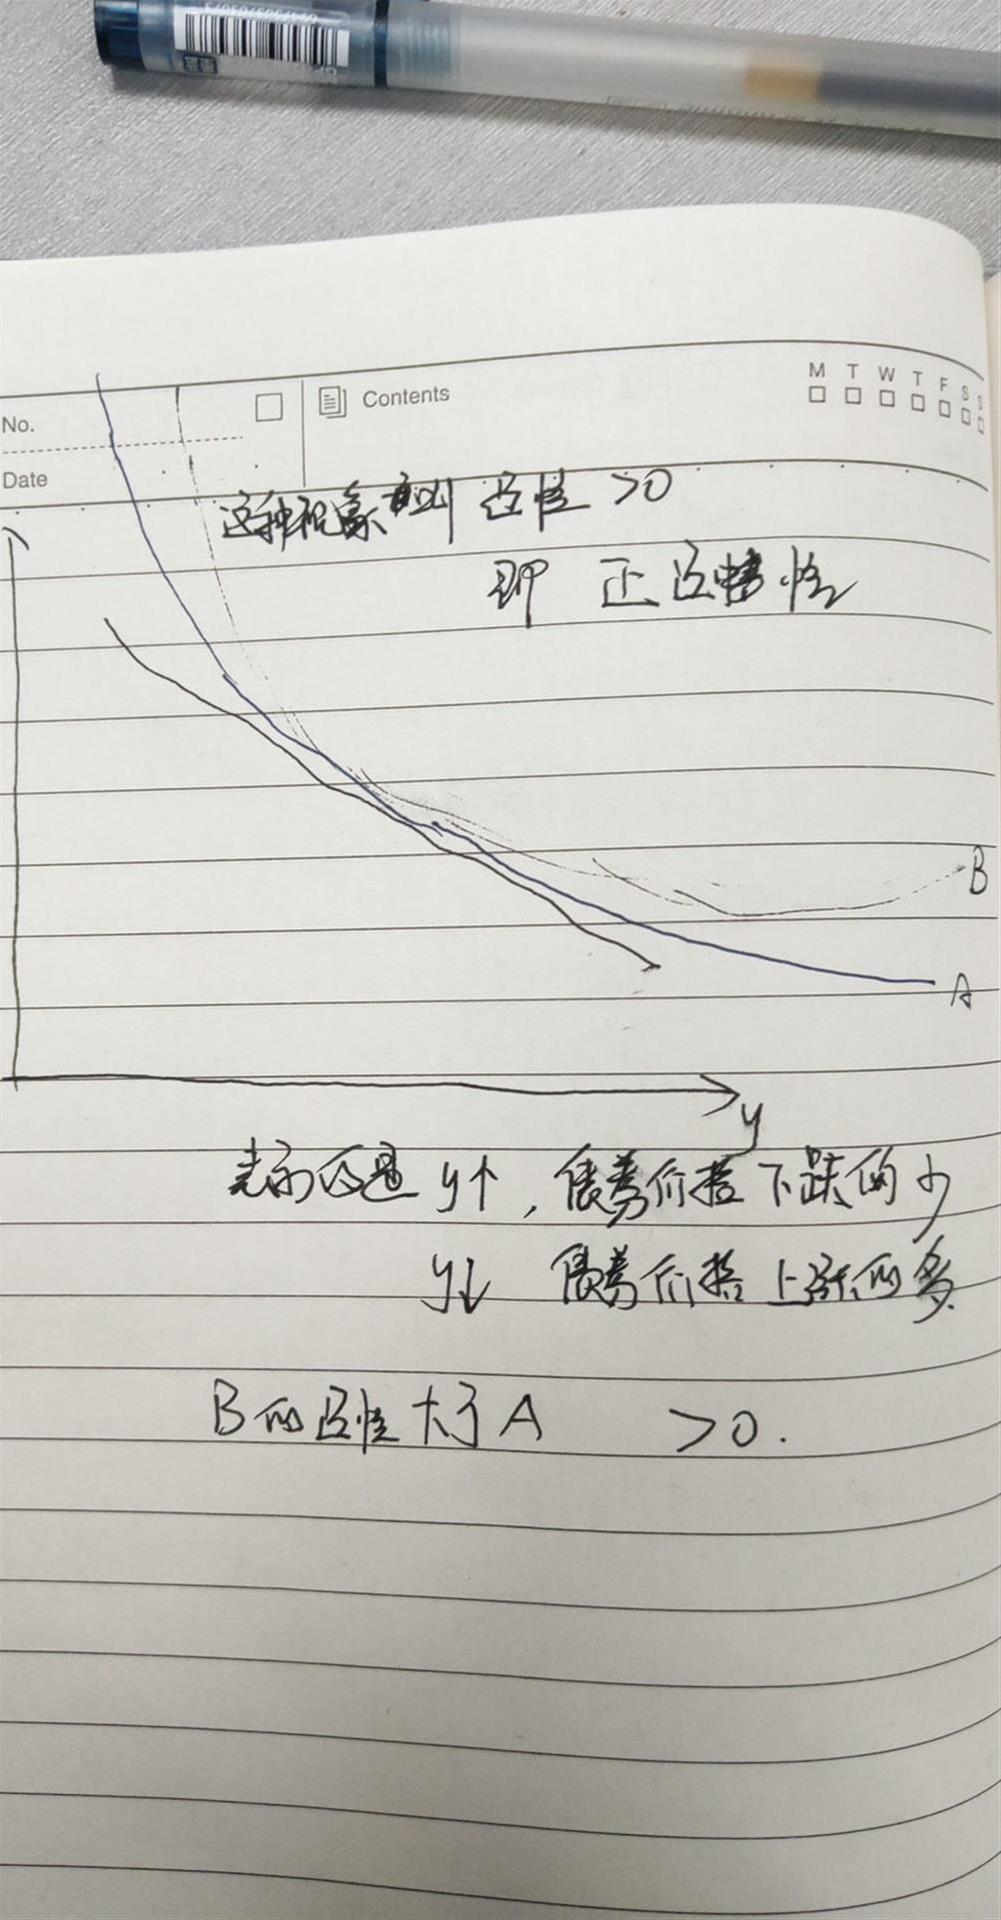 No.
Date
Contents
M T W T F S S
这种现象 凸性 >0
即 正凸性
B
A
y
表示的是 y↑, 债券价格下跌的少
y↓ 债券价格上涨的多
B的凸性大于A >0.